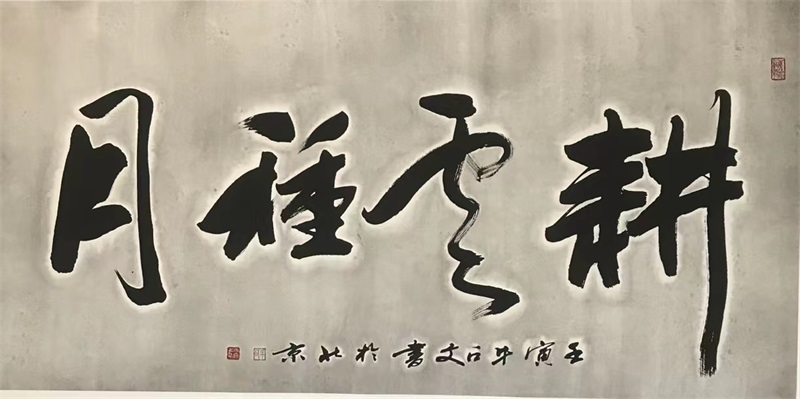 耕雲種月
壬寅牛口文書於北京